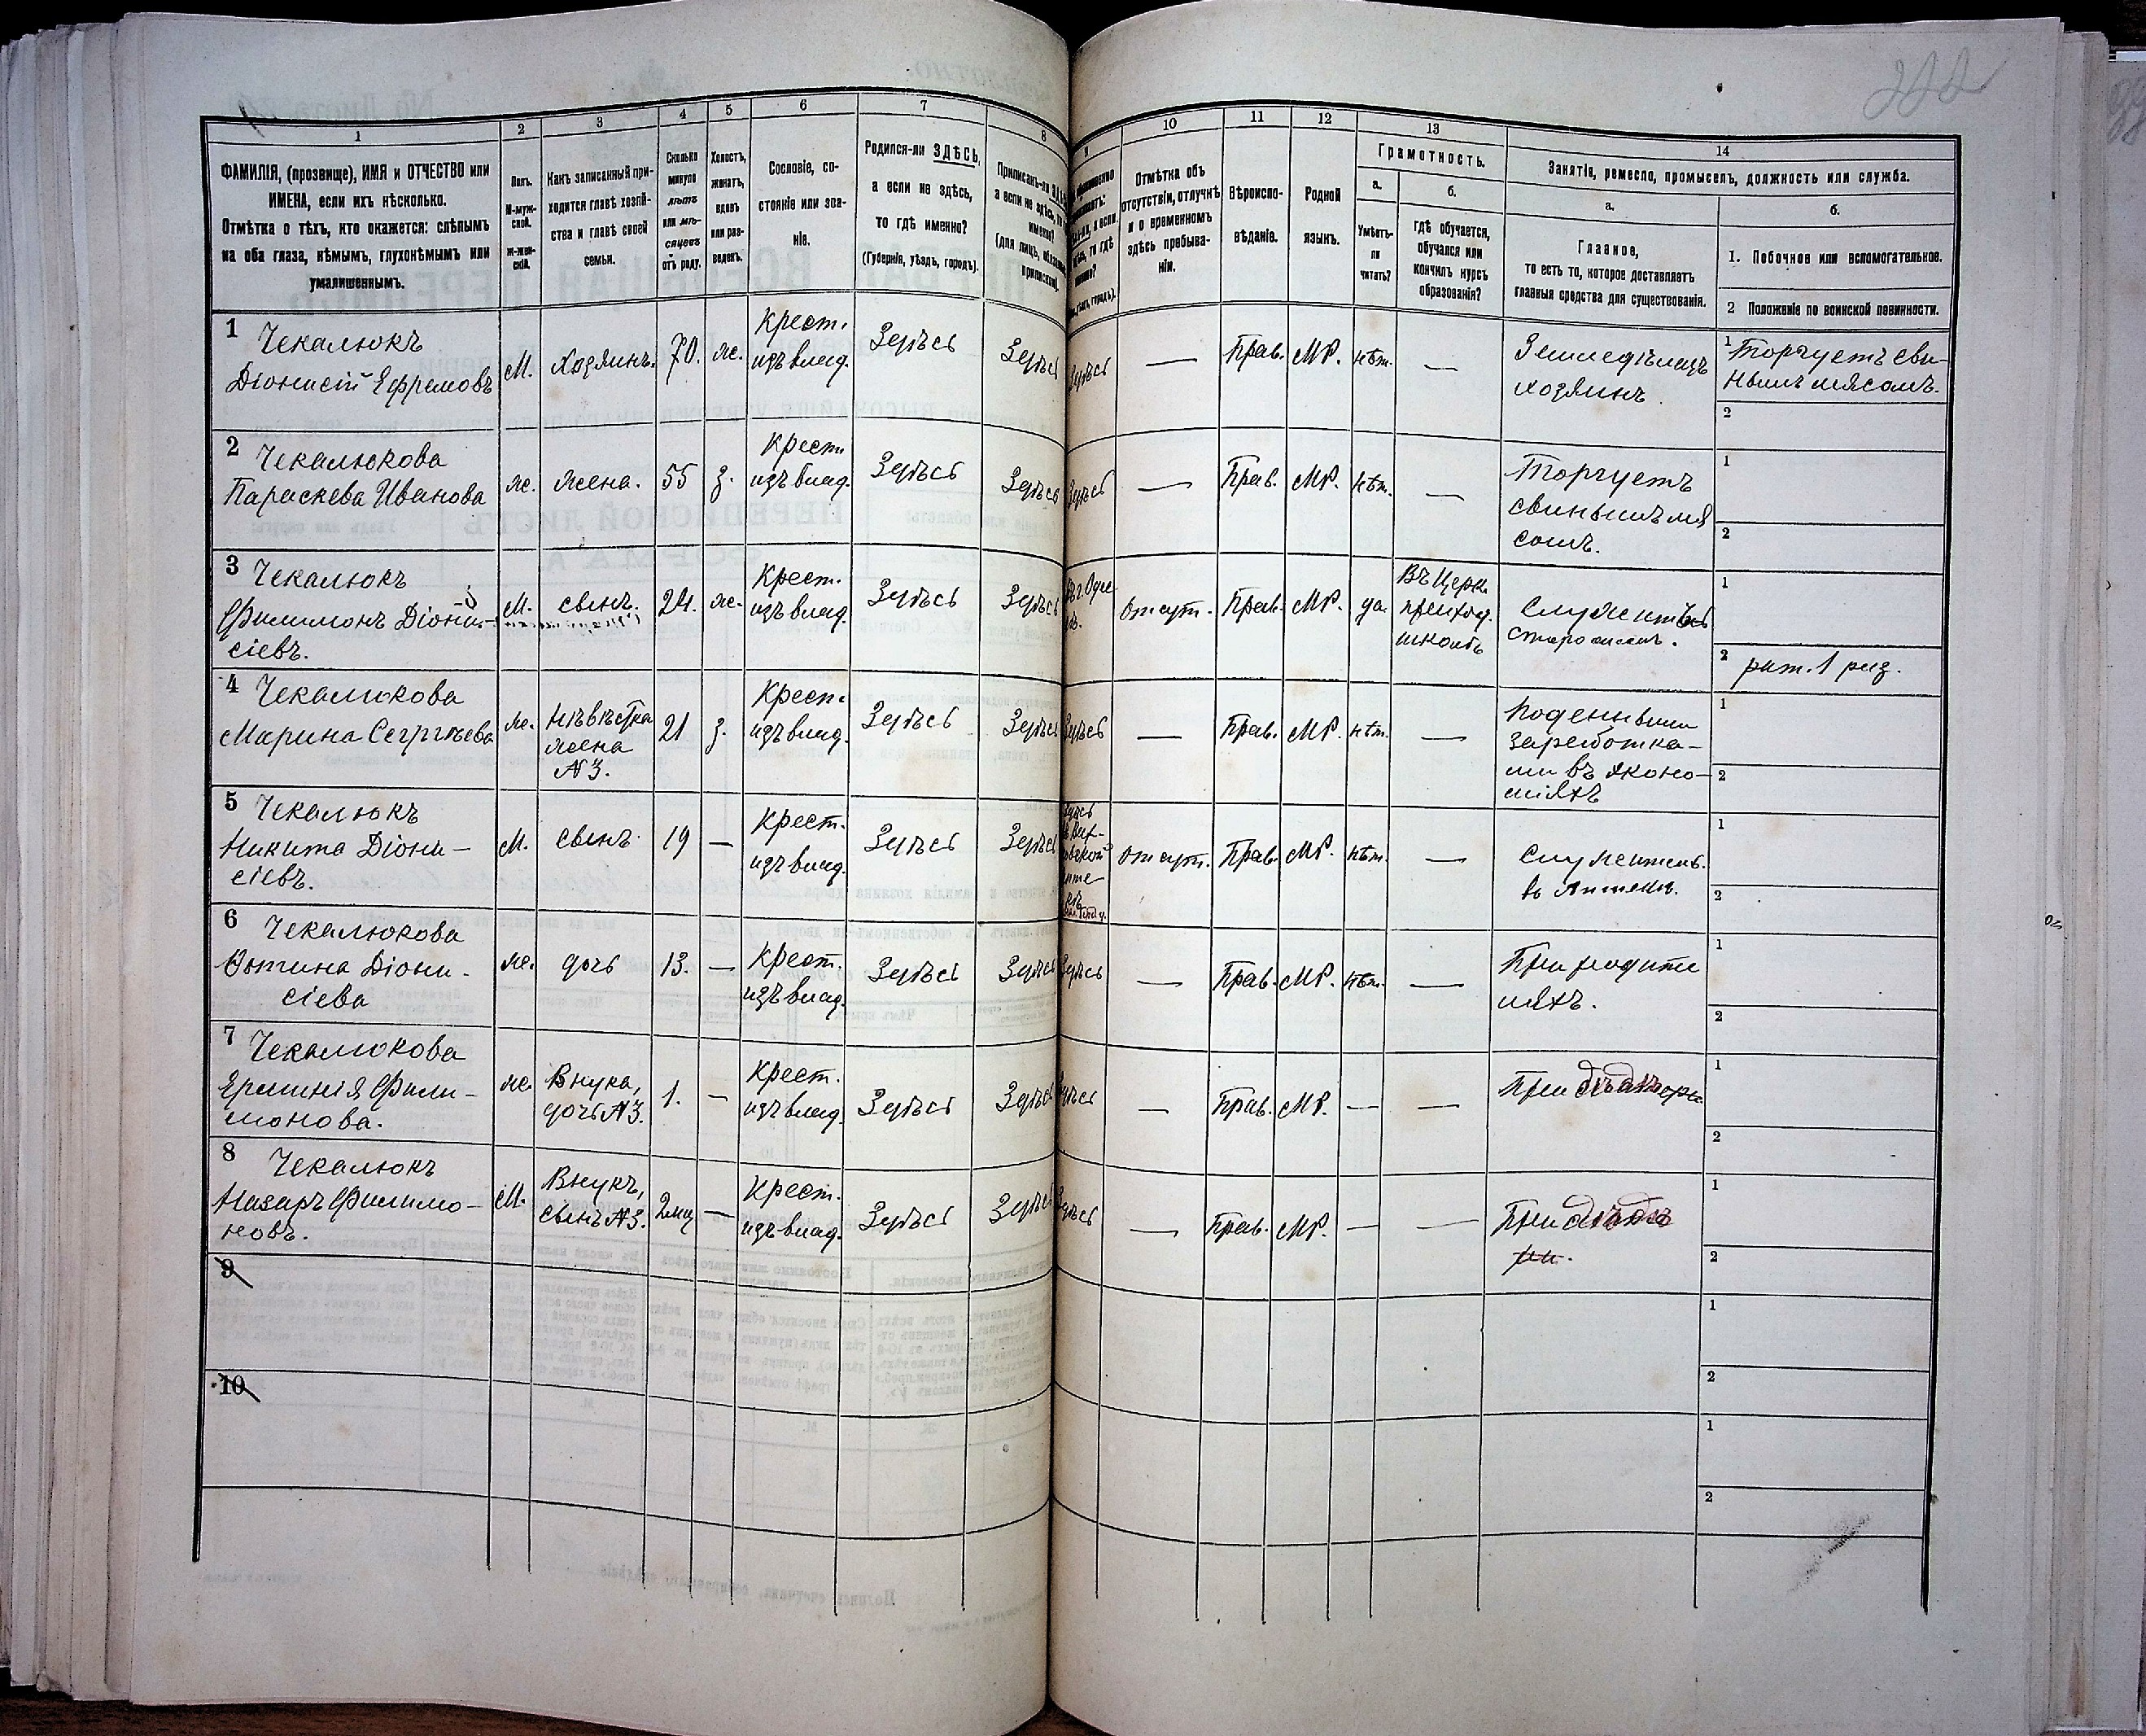 222
1
2
3
4
5
6
7
8
10
11
12
13
14
ФАМИЛІЯ, (прозвище), ИМЯ и ОТЧЕСТВО или
ИМЕНА, если ихъ нѣсколько.
Отмѣтка о тѣхъ, кто окажется: слѣпымъ
на оба глаза, нѣмымъ, глухонѣмымъ или
умалишеннымъ.
Полъ.
М-муж-
ской.
Ж-жен-
скій.
Какъ записанный при-
ходится главѣ хозяй-
ства и главѣ своей
семьи.
Сколько
минуло
лѣтъ
или мѣ-
сяцевъ
отъ роду.
Холостъ,
женатъ,
вдовъ
или раз-
веденъ.
Сословіе, со-
стояніе или зва-
ніе.
Родился-ли ЗДѢСЬ,
а если не здѣсь,
то гдѣ именно?
(Губернія, уѣздъ, городъ).
Приписанъ-ли
а если не здѣсь,
(для лицъ,
Отмѣтка объ
отсутствіи, отлучкѣ
и о временномъ
здѣсь пребыва-
ніи.
Вѣроиспо-
вѣданіе.
Родной
языкъ.
Грамотность.
а.
Умѣетъ-
ли
читать?
б.
гдѣ обучается,
обучался или
кончилъ курсъ
образованія?
Занятіе, ремесло, промыселъ, должность или служба.
а.
Главное,
то есть то, которое доставляетъ
главныя средства для существованія.
б.
1. Побочное или вспомогательное.
2 Положеніе по воинской повинности.
1 Чекалюкъ
Діонисій Ефремовъ
М.
Хозяинъ.
70.
ж.
Крест.
изъ влад.
Здѣсь
Здѣсь
Здѣсь
—
Прав.
МР.
нѣт.
—
Земледѣлецъ
хозяинъ
1 Торгуетъ сви-
нымъ мясомъ.
2
2 Чекалюкова
Параскева Иванова
ж.
жена.
55
з.
Крест.
изъ влад.
Здѣсь
Здѣсь
Здѣсь
—
Прав.
МР.
нѣт.
—
Торгуетъ
свинымъ мя
сомъ.
1
2
3 Чекалюкъ
Филимонъ Діони-
сіевъ.
М.
сынъ.
24.
ж.
Крест.
изъ влад.
Здѣсь
Здѣсь
Отсут.
Прав.
МР.
да.
Въ Церк.
приход.
школѣ
Служитъ
1
2 рат. 1 раз.
4 Чекалюкова
Марина Сергѣева
ж.
Невѣстка
жена
№3.
21
з.
Крест.
изъ влад.
Здѣсь
Здѣсь
Здѣсь
—
Прав.
МР.
нѣт.
—
Поденными
Заработка-
ми въ Эконо-
міяхъ
1
2
5 Чекалюкъ
Никита Діони-
сіевъ.
М.
сынъ.
19
—
Крест.
изъ влад.
Здѣсь
Здѣсь
Отсут.
Прав.
МР.
нѣт.
—
Служитель.
въ Аптекѣ.
1
2
6 Чекалюкова
Фотина Діони-
сіева
ж.
дочь
13.
—
Крест.
изъ влад.
Здѣсь
Здѣсь
Здѣсь
—
Прав.
МР.
нѣт.
—
При родите
ляхъ.
1
2
7 Чекалюкова
Ермінія Фили-
монова.
ж.
Внука,
дочь №3.
1.
—
Крест.
изъ влад.
Здѣсь
Здѣсь
Здѣсь
—
Прав.
МР.
—
—
При
1
2
8 Чекалюкъ
Назаръ Филимо-
новъ.
М.
Внукъ,
сынъ №3.
2 мц
—
Крест.
изъ влад.
Здѣсь
Здѣсь
Здѣсь
—
Прав.
МР.
—
—
При
1
2
9
1
2
10
1
2